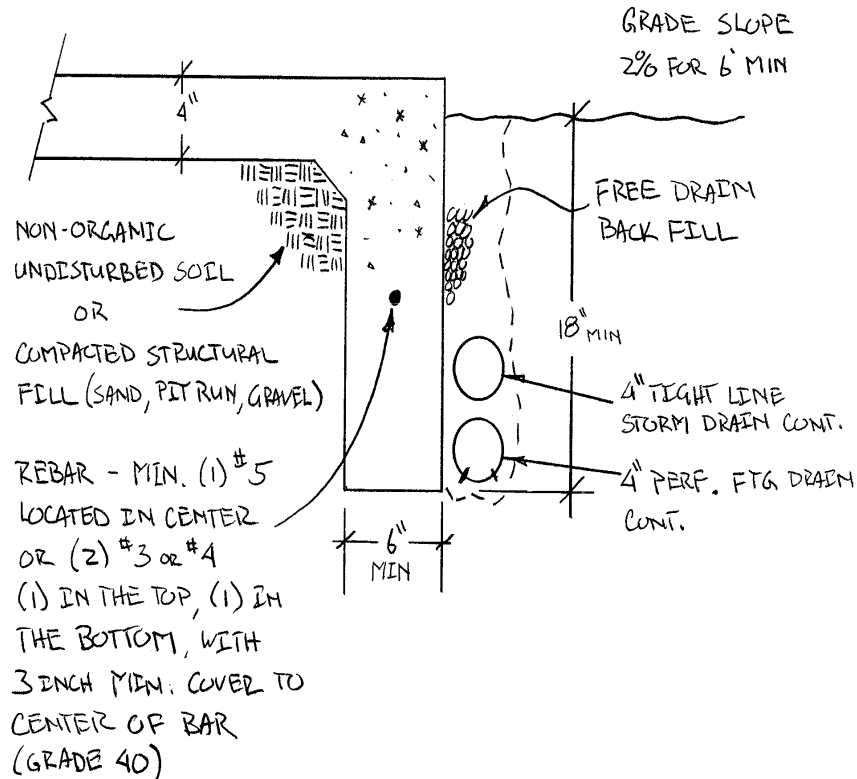 GRADE SLOPE
2% FOR 6' MIN
4"
FREE DRAIN
BACK FILL
NON-ORGANIC
UNDISTURBED SOIL
OR
COMPACTED STRUCTURAL
FILL (SAND, PIT RUN, GRAVEL)
18" MIN
4" TIGHT LINE
STORM DRAIN CONT.
4" PERF. FTG DRAIN
CONT.
REBAR - MIN. (1) #5
LOCATED IN CENTER
OR (2) #3 OR #4
(1) IN THE TOP, (1) IN
THE BOTTOM, WITH
3 INCH MIN. COVER TO
CENTER OF BAR
(GRADE 40)
6"
MIN